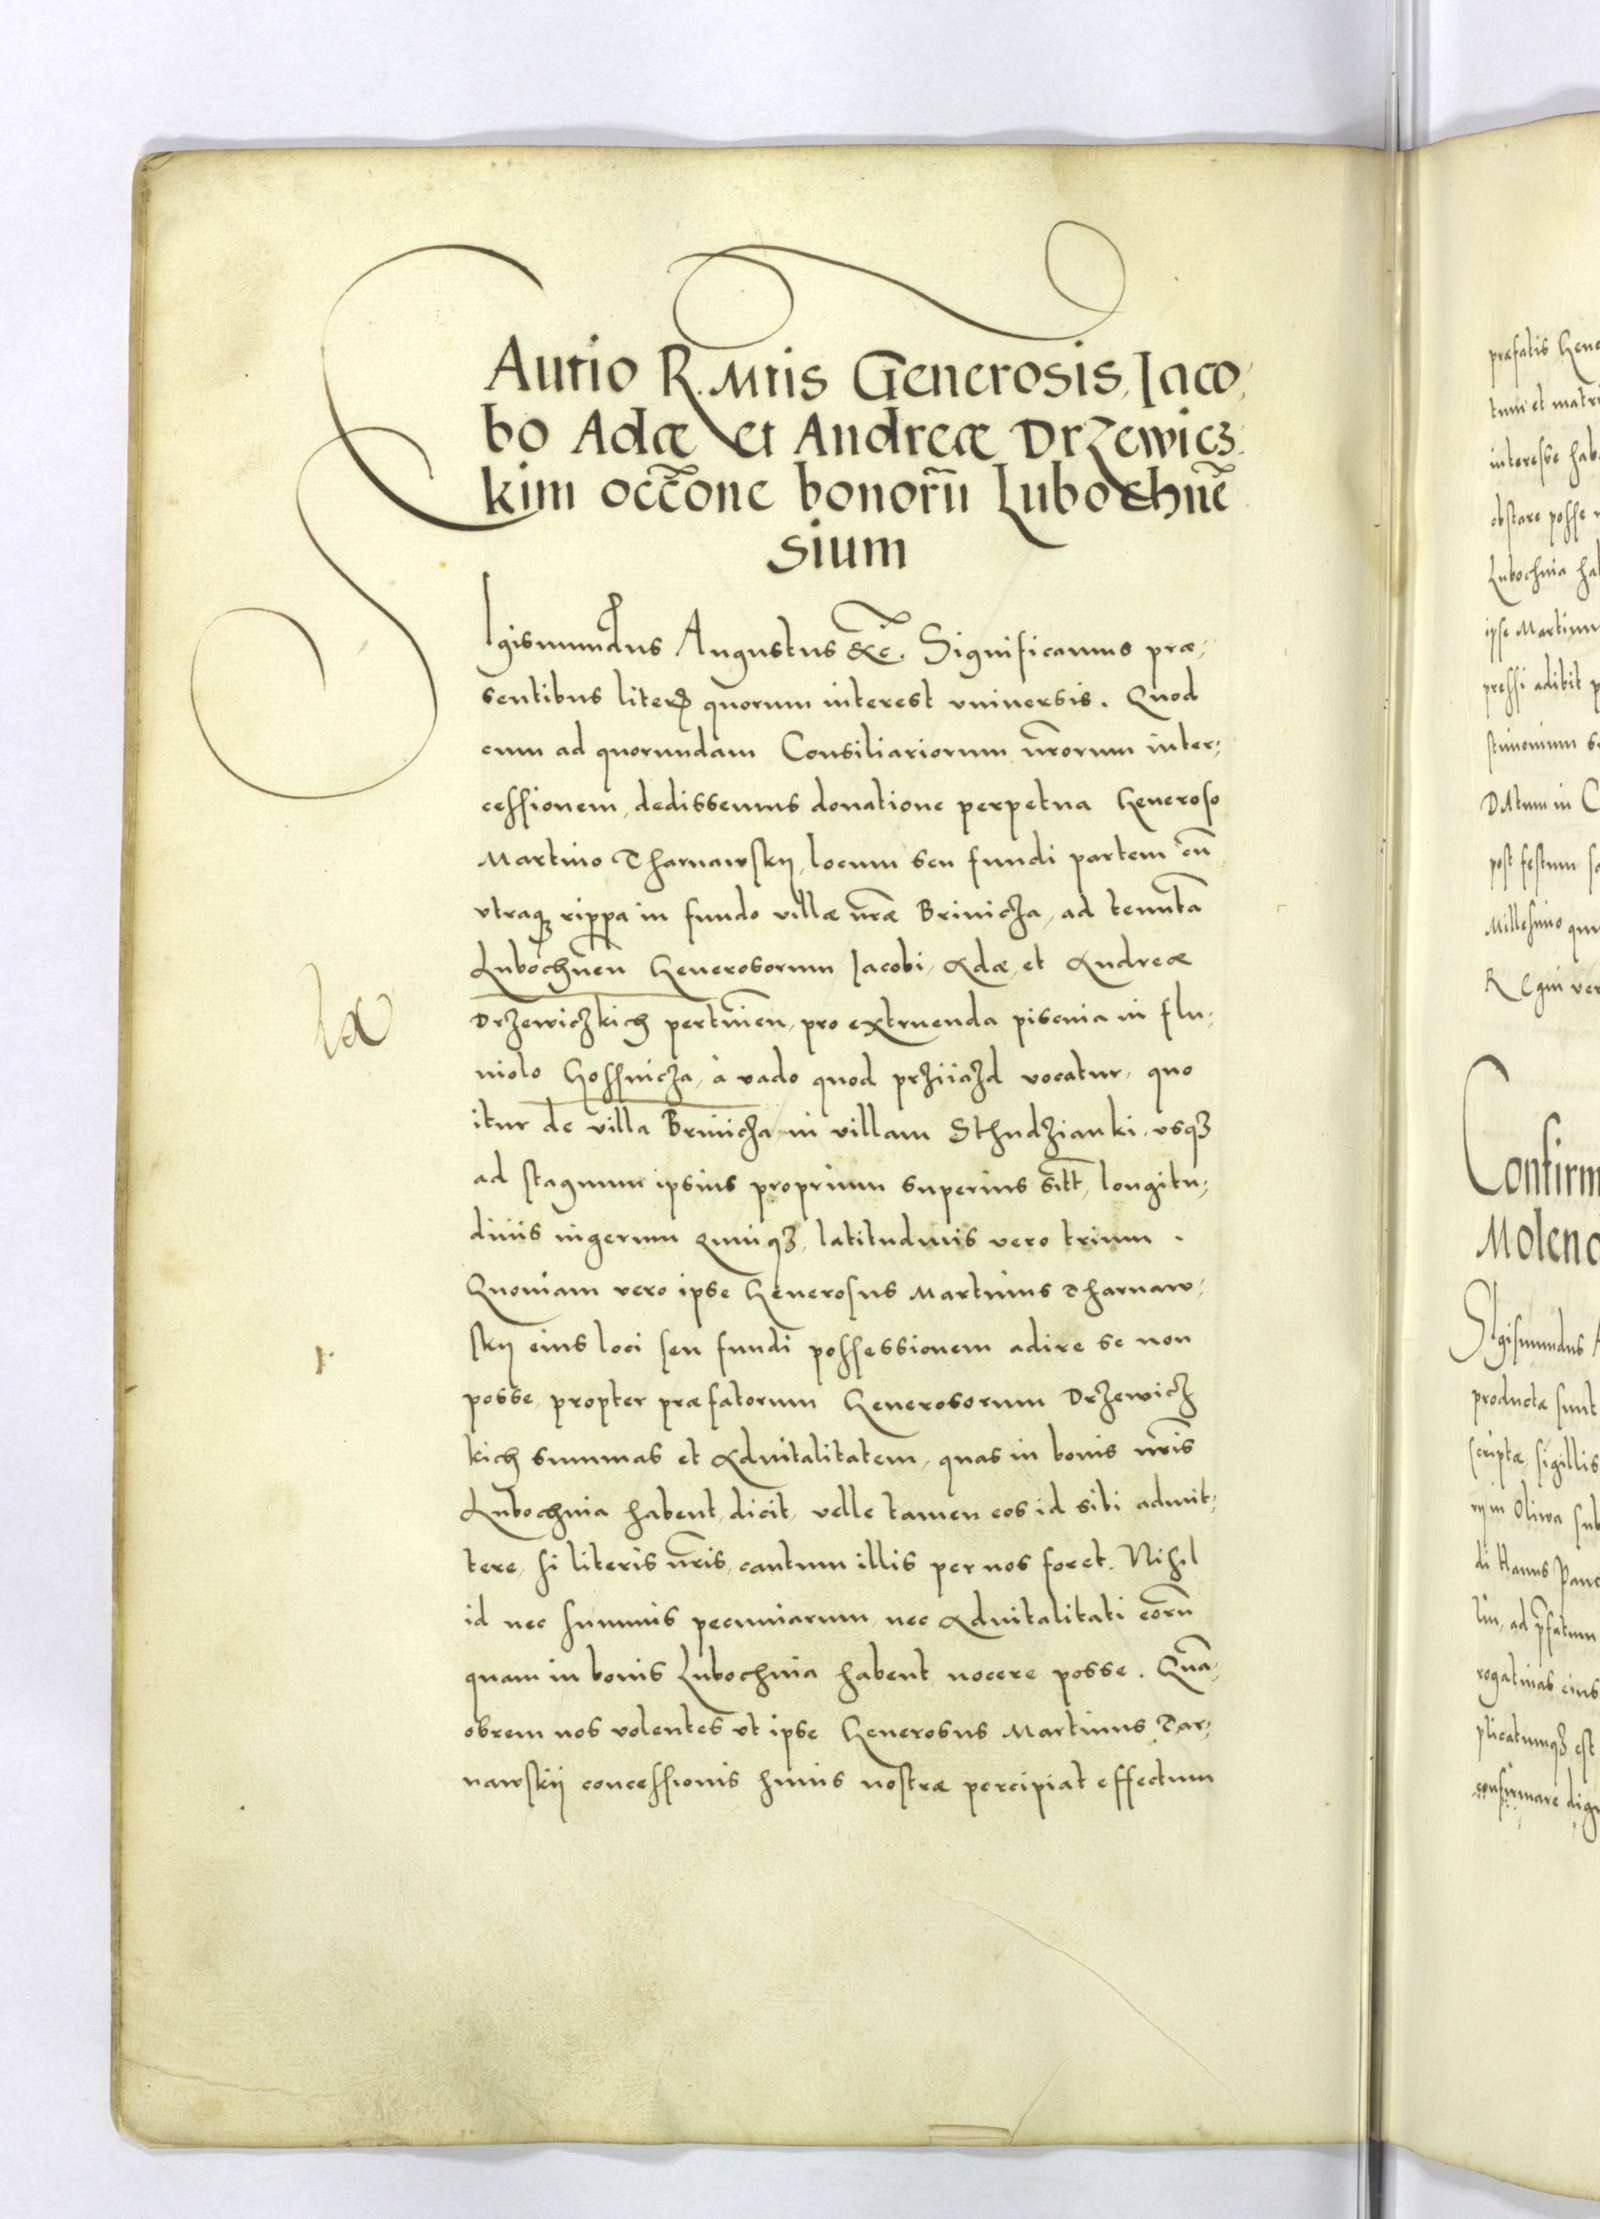 Cautio R. Mtis Generosis, Iaco,
bo Adæ et Andreæ Drzewicz.
kim occõne bonorũ Lubochnẽ
sium
Sigismundus Augustus &c̃. Significamus præ,
sentibus literis quorum interest vniversis. Quod
cum ad quorundam Consiliariorum nrorum inter,
cessionem, dedissemus donatione perpetua Generoso
Martino Tharnawskij, locum seu fundi partem cũ
vtraq3 rippa in fundo villæ nræ Brinicza, ad tenutã
Lubochnen̄ Generosorum Iacobi, Adæ, et Andreæ
Drzewiczkich pertineñ, pro extruenda piscina in flu,
uiolo Gossnicza, à vado quod prziiazd vocatur, quo
itur de villa Brinicza in villam Sthudzianki, vsq3
ad stagnum ipsius proprium superius sitũ, longitu,
dinis iugerum quinq3, latitudinis vero trium.
Quoniam vero ipse Generosus Martinus Tharnaw,
skij eius loci seu fundi possessionem adire se non
posse, propter præfatorum Generosorum Drzewicz
kich summas et Aduitalitatem, quas in bonis nris
Lubochnia habent, dicit, velle tamen eos id sibi admit,
tere, si literis nris, cautum illis per nos foret. Nihil
id nec summis pecuniarum, nec Aduitalitati eorũ
quam in bonis Lubochnia habent nocere posse. Quã,
obrem nos volentes vt ipse Generosus Martinus Tar,
nawskij concessionis huius nostræ percipiat effectum
præfatis Gene
tum et matri
interesse hab
obstare posse
Lubochnia ha
ipse Martinu
pressi adibit
stimonium
Datum in C
post festum
Millesimo qu
Regni ver
Confirm
Moleno
Sigismundus
productæ sunt
scriptæ, sigillis
in Oliwa sub
di Hanus
lin, ad pfatum
rogatiuas eius
plicatumq3 est
confirmare dig